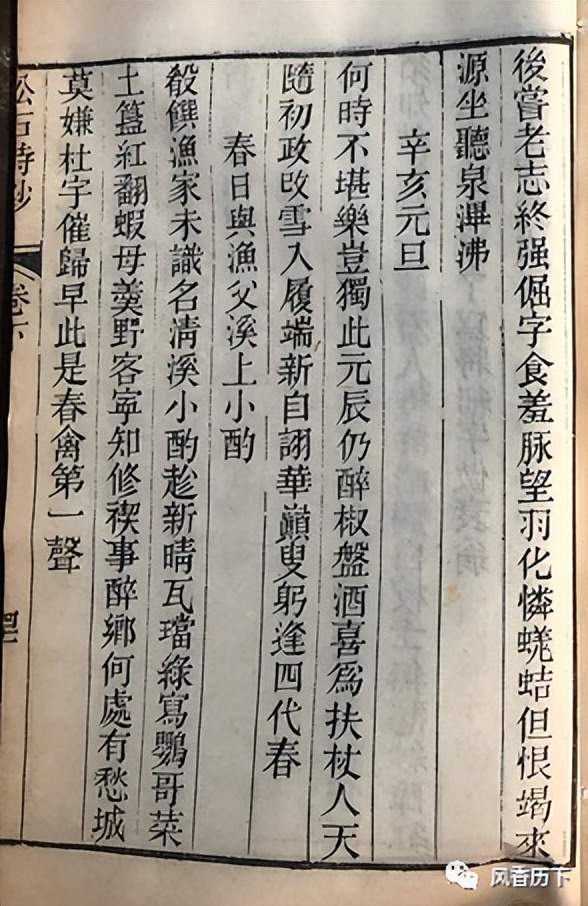 後嘗老志終强倔字食羞脉望羽化憐蛣但恨朅來
源坐聽泉滭沸
辛亥元旦
何時不堪樂豈獨此元辰仍醉椒盤酒喜爲扶杖人天
隨初政改雪入履端新自詡華巔叟躬逢四代春
春日與漁父溪上小酌
殽饌漁家未識名清溪小酌趁新晴瓦璫綠寫鸚哥菜
土簋紅翻蝦母羹野客寧知修禊事醉鄉何處有愁城
莫嫌杜宇催歸早此是春禽第一聲
松石詩鈔
卷下
风香历下